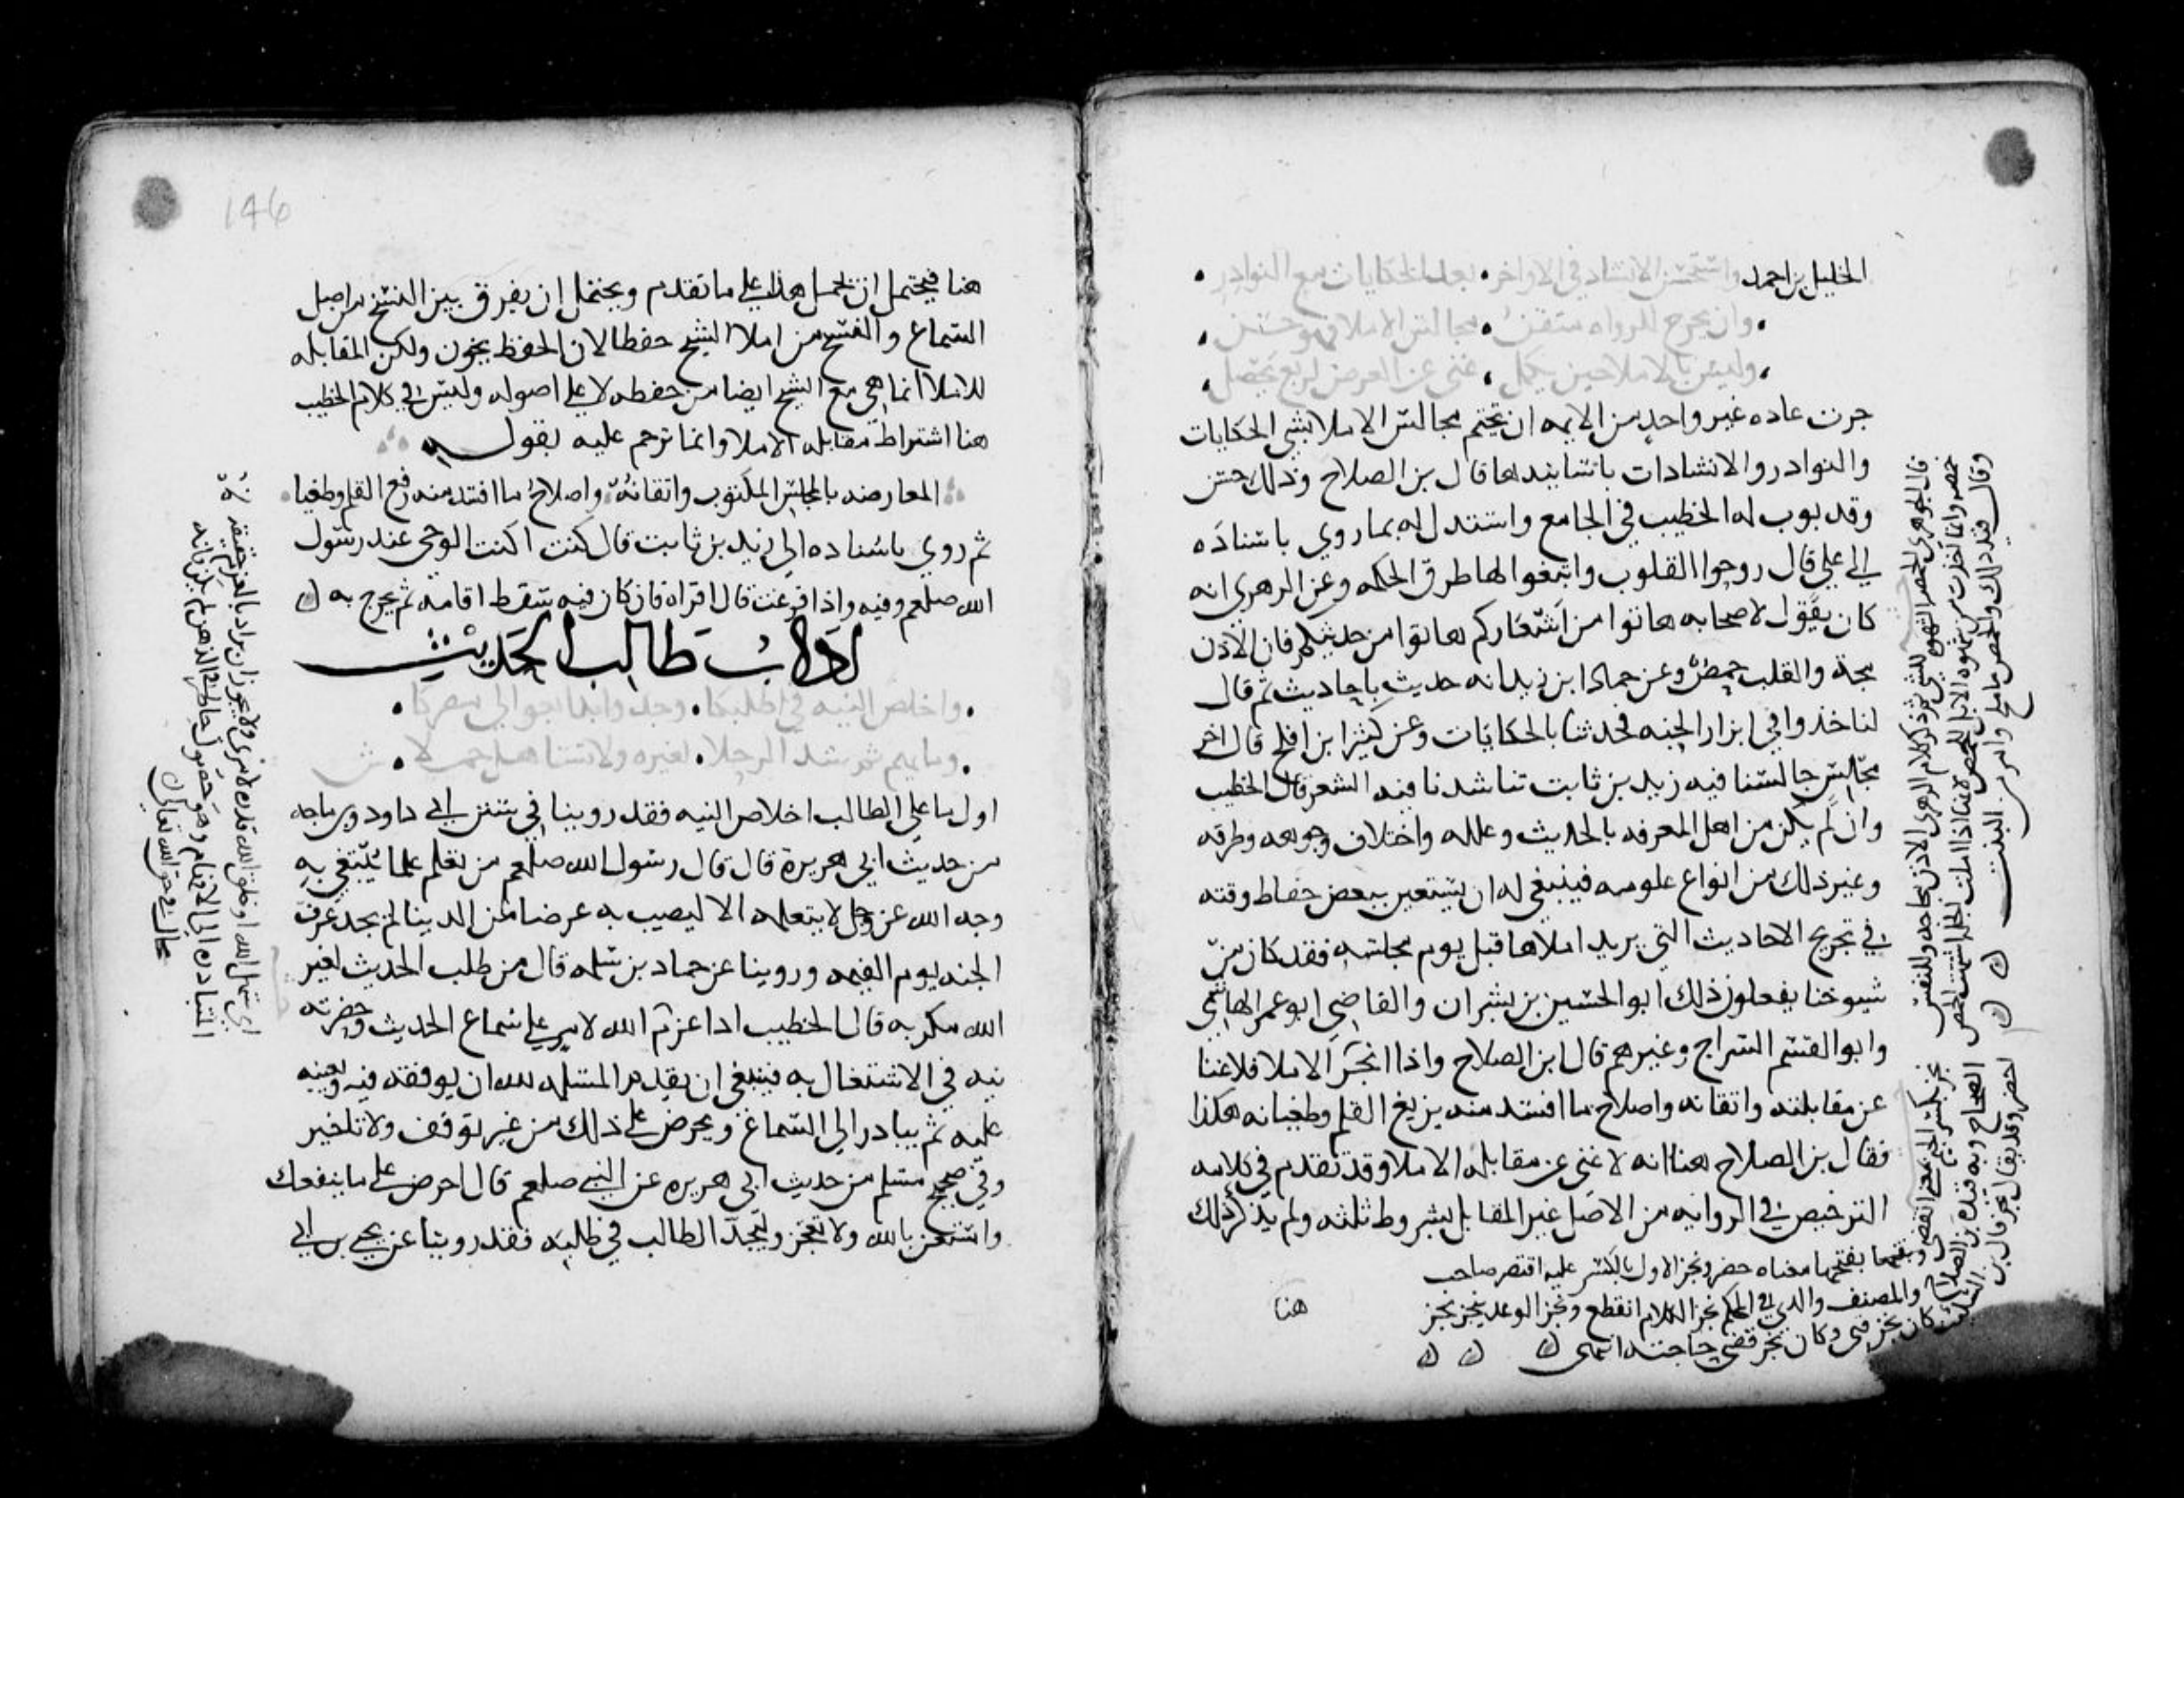 الخليل بن احمد واستحسن الانشاد في الاواخر • بعد الحكايات مع النوادر •
• وان يخرج للرواه متقن • مجالس الاملا فهو حسن •
• وليس بالاملا حين يكمل • غنى عن العرض لزيغ يحصل •
جرت عاده غير واحد من الايمه ان يختم مجالس الاملا بشي الحكايات
والنوادر والانشادات باسانيدها قال بن الصلاح وذلك حسن
وقد بوب له الخطيب في الجامع واستدل له بما روي باسناده
الى علي قال روحوا القلوب وابتغوا لها طرق الحكمه وعن الزهري انه
كان يقول لاصحابه هاتوا من اشعاركم هاتوا من حديثكم فان الاذن
مجة والقلب حمض وعن حماد ابن زيد انه حديث باحاديث ثم قال
لنا خذوا في ابزار الجنه فحدثنا بالحكايات وعن كثير ابن افلح قال اخر
مجالس جالسنا فيه زيد بن ثابت تناشدنا فيه الشعر قال الخطيب
وان لم يكن من اهل المعرفه بالحديث وعلله واختلاف وجوهه وطرقه
وغير ذلك من انواع علومه فينبغي له ان يستعين ببعض حفاظ وقته
في تخريج الاحاديث التي يريد املاها قبل يوم مجلسه فقد كان من
شيوخنا يفعلون ذلك ابو الحسين بن بشران والقاضي ابو عمر الهاشمي
وابو القسم السراج وغيرهم قال ابن الصلاح واذا انجز الاملا فلا غنا
عن مقابلته واتقانه واصلاح ما افسد منه بزيغ القلم وطغيانه هكذا
فقال بن الصلاح هنا انه لا غنى عن مقابلة الاملا وقد تقدم في كلامه
الترخيص في الروايه من الاصل غير المقابل بشروط ثلثه ولم يذكر ذلك
هنا
قال الجوهري الحمض الشهوه للشي ثم ذكر كلام الزهري الاذن مجاجه وللنفس
حمضه وانما اخذت من شهوه الابل للحمض لانها اذا ملت الخله اشتهت الحمض
نجز بكسر الجيم معنى انقضى وبفتحها معناه حضر ونجز الاول بالكسر عليه اقتصر صاحب
الصحاح وبه قيده بن الصلاح والمصنف والذي في المحكم نجز الكلام انقطع ونجز الوعد ينجز نجز
احضر وقد يقال نجز قال بن السكيت كان نجز فنى وكان نجز قضى حاجته انتهى
146
هنا فيحتمل ان يحمل هذا على ما تقدم ويحتمل ان يفرق بين النسخ من اصل
السماع والنسخ من املا الشيخ حفظا لان الحفظ يخون ولكن المقابله
للاملا انما هي مع الشيخ ايضا من حفظه لا على اصوله وليس في كلام الخطيب
هنا اشتراط مقابله الاملا وانما ترجم عليه بقوله
المعارضه بالمجلس المكتوب واتقانه واصلاح ما افسد منه زيغ القلم وطغيانه
ثم روي باسناده الى زيد بن ثابت قال كنت اكتب الوحي عند رسول
الله صلعم وفيه واذا فرغت قال اقراه فان كان فيه سقط اقامه ثم يخرج به
اداب طالب الحديث
• واخلص النيه في طلبكا • وجد وابدا بعوالي مصركا •
• وما يهم ثم شد الرحلا • لغيره ولا تساهل حملا •
اول ما على الطالب اخلاص النيه فقد روينا في سنن ابي داود وبن ماجه
من حديث ابي هريرة قال قال رسول الله صلعم من تعلم علما يبتغي به
وجه الله عز وجل لا يتعلمه الا ليصيب به عرضا من الدينا لم يجد عرف
الجنه يوم القيمه وروينا عن حماد بن سلمه قال من طلب الحديث لغير
الله مكر به قال الخطيب اذا عزم الله لامرء على سماع الحديث وحضرته
نيه في الاشتغال به فينبغي ان يقدم المسله لله ان يوفقه فيه ويعينه
عليه ثم يبادر الى السماع ويحرص على ذلك من غير توقف ولا تاخير
وفي صحيح مسلم من حديث ابي هريره عن النبي صلعم قال احرص على ما ينفعك
واستعن بالله ولا تعجز وليجد الطالب في طلبه فقد روينا عن يحي بن ابي